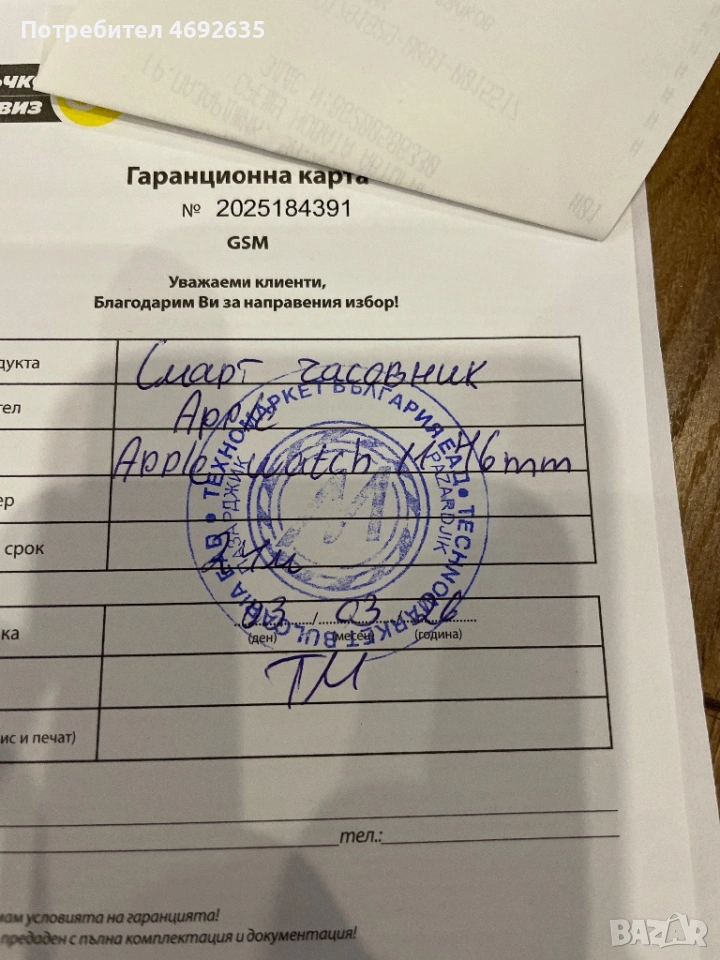 Потребител 4692635
ЧК
ВИЗ
Гаранционна карта
№ 2025184391
GSM
Уважаеми клиенти,
Благодарим Ви за направения избор!
дукта
Смарт часовник
тел
Apple
Apple watch 11 46mm
ер
срок
24м
ка
03 / 03 / 26
(ден) (месец) (година)
ТМ
ис и печат)
ТЕХНОМАРКЕТ БЪЛГАРИЯ ЕАД • TECHNOMARKET BULGARIA EAD •
ПАЗАРДЖИК
PAZARDJIK
тел.:
мам условията на гаранцията!
предаден с пълна комплектация и документация!
BAZAR